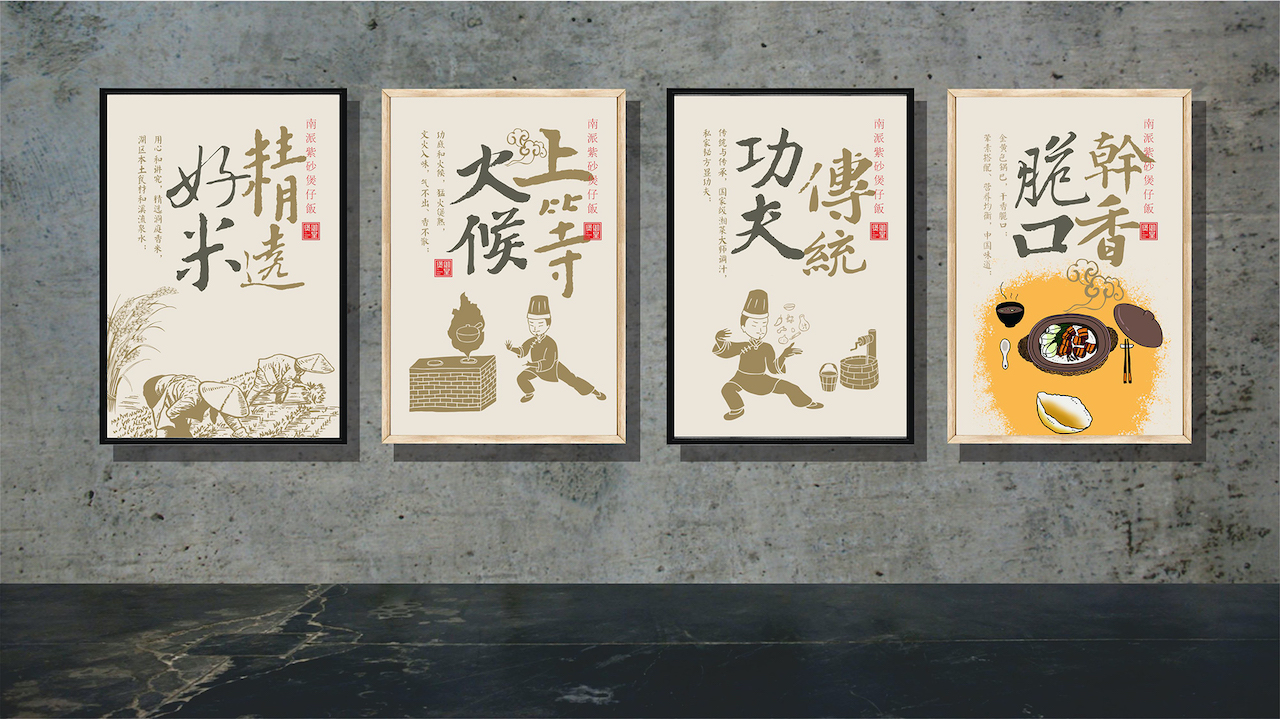 南派紫砂煲仔飯
精遶
好米
用心和讲究，精选洞庭香米，
湖区本土食材和溪流泉水；
南派紫砂煲仔飯
上等
火候
功底和火候，猛火煲熟，
文火入味，气不出、香不散；
南派紫砂煲仔飯
傳統
功夫
传统与传承，国家级湘菜大师调汁，
私家秘方显功夫；
南派紫砂煲仔飯
幹香
脆口
金黄色锅巴，干香脆口；
荤素搭配、营养均衡、中国味道；